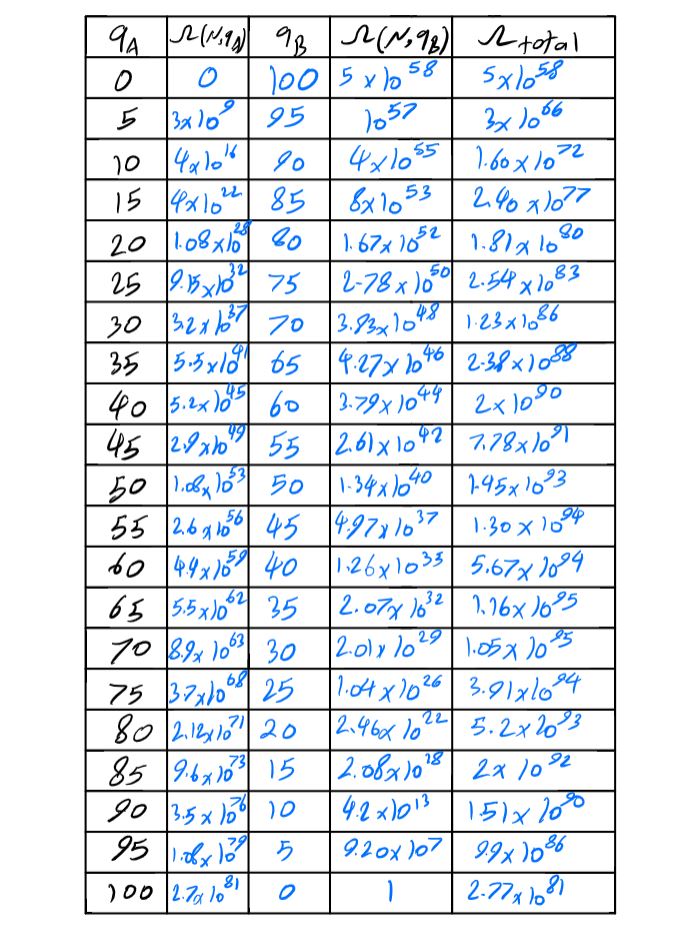 qA Ω(N,qA) qB Ω(N,qB) Ωtotal
0 0 100 5 x 10^58 5x10^58
5 3x10^9 95 10^57 3x10^66
10 4x10^16 90 4x10^55 1.60x10^72
15 4x10^22 85 8x10^53 2.40x10^77
20 1.08x10^28 80 1.67x10^52 1.81x10^80
25 9.15x10^32 75 2.78x10^50 2.54x10^83
30 3.2x10^37 70 3.83x10^48 1.23x10^86
35 5.5x10^41 65 4.27x10^46 2.38x10^88
40 5.2x10^45 60 3.79x10^44 2x10^90
45 2.9x10^49 55 2.61x10^42 7.78x10^91
50 1.08x10^53 50 1.34x10^40 1.45x10^93
55 2.6x10^56 45 4.97x10^37 1.30x10^94
60 4.4x10^59 40 1.26x10^35 5.67x10^94
65 5.5x10^62 35 2.07x10^32 1.16x10^95
70 8.9x10^63 30 2.01x10^29 1.05x10^95
75 3.7x10^68 25 1.04x10^26 3.91x10^94
80 2.12x10^71 20 2.46x10^22 5.2x10^93
85 9.6x10^73 15 2.08x10^18 2x10^92
90 3.5x10^76 10 4.2x10^13 1.51x10^90
95 1.08x10^79 5 9.20x10^7 9.9x10^86
100 2.7x10^81 0 1 2.77x10^81